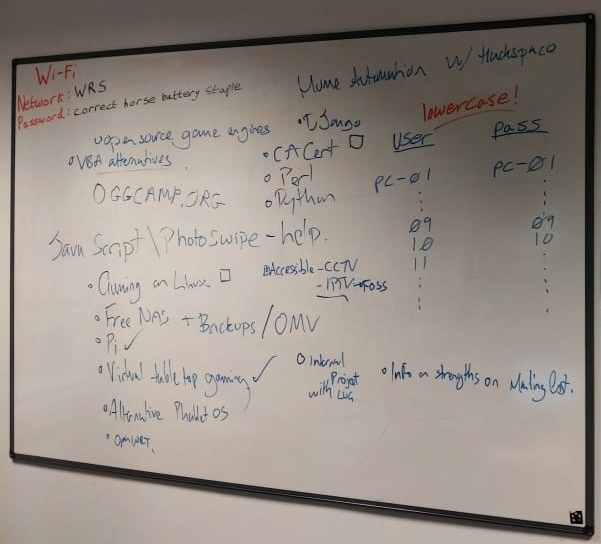 Wi-Fi
Network: WRS
Password: correct horse battery staple
Home Automation w/ Hackspace
open source game engines
VBA alternatives
OGGCAMP.ORG
Django
CACert
Perl
Python
lowercase!
User
pass
pc-01
pc-01
09
09
10
10
11
JavaScript\PhotoSwipe-help.
on Linux
Accessible-CCTV
-IPTV→FOSS
Free NAS + Backups/OMV
Pi ✓
Virtual tabletop gaming ✓
Project
with LUG
Info on strengths on Mailing List.
Alternative OS
OpenWRT.